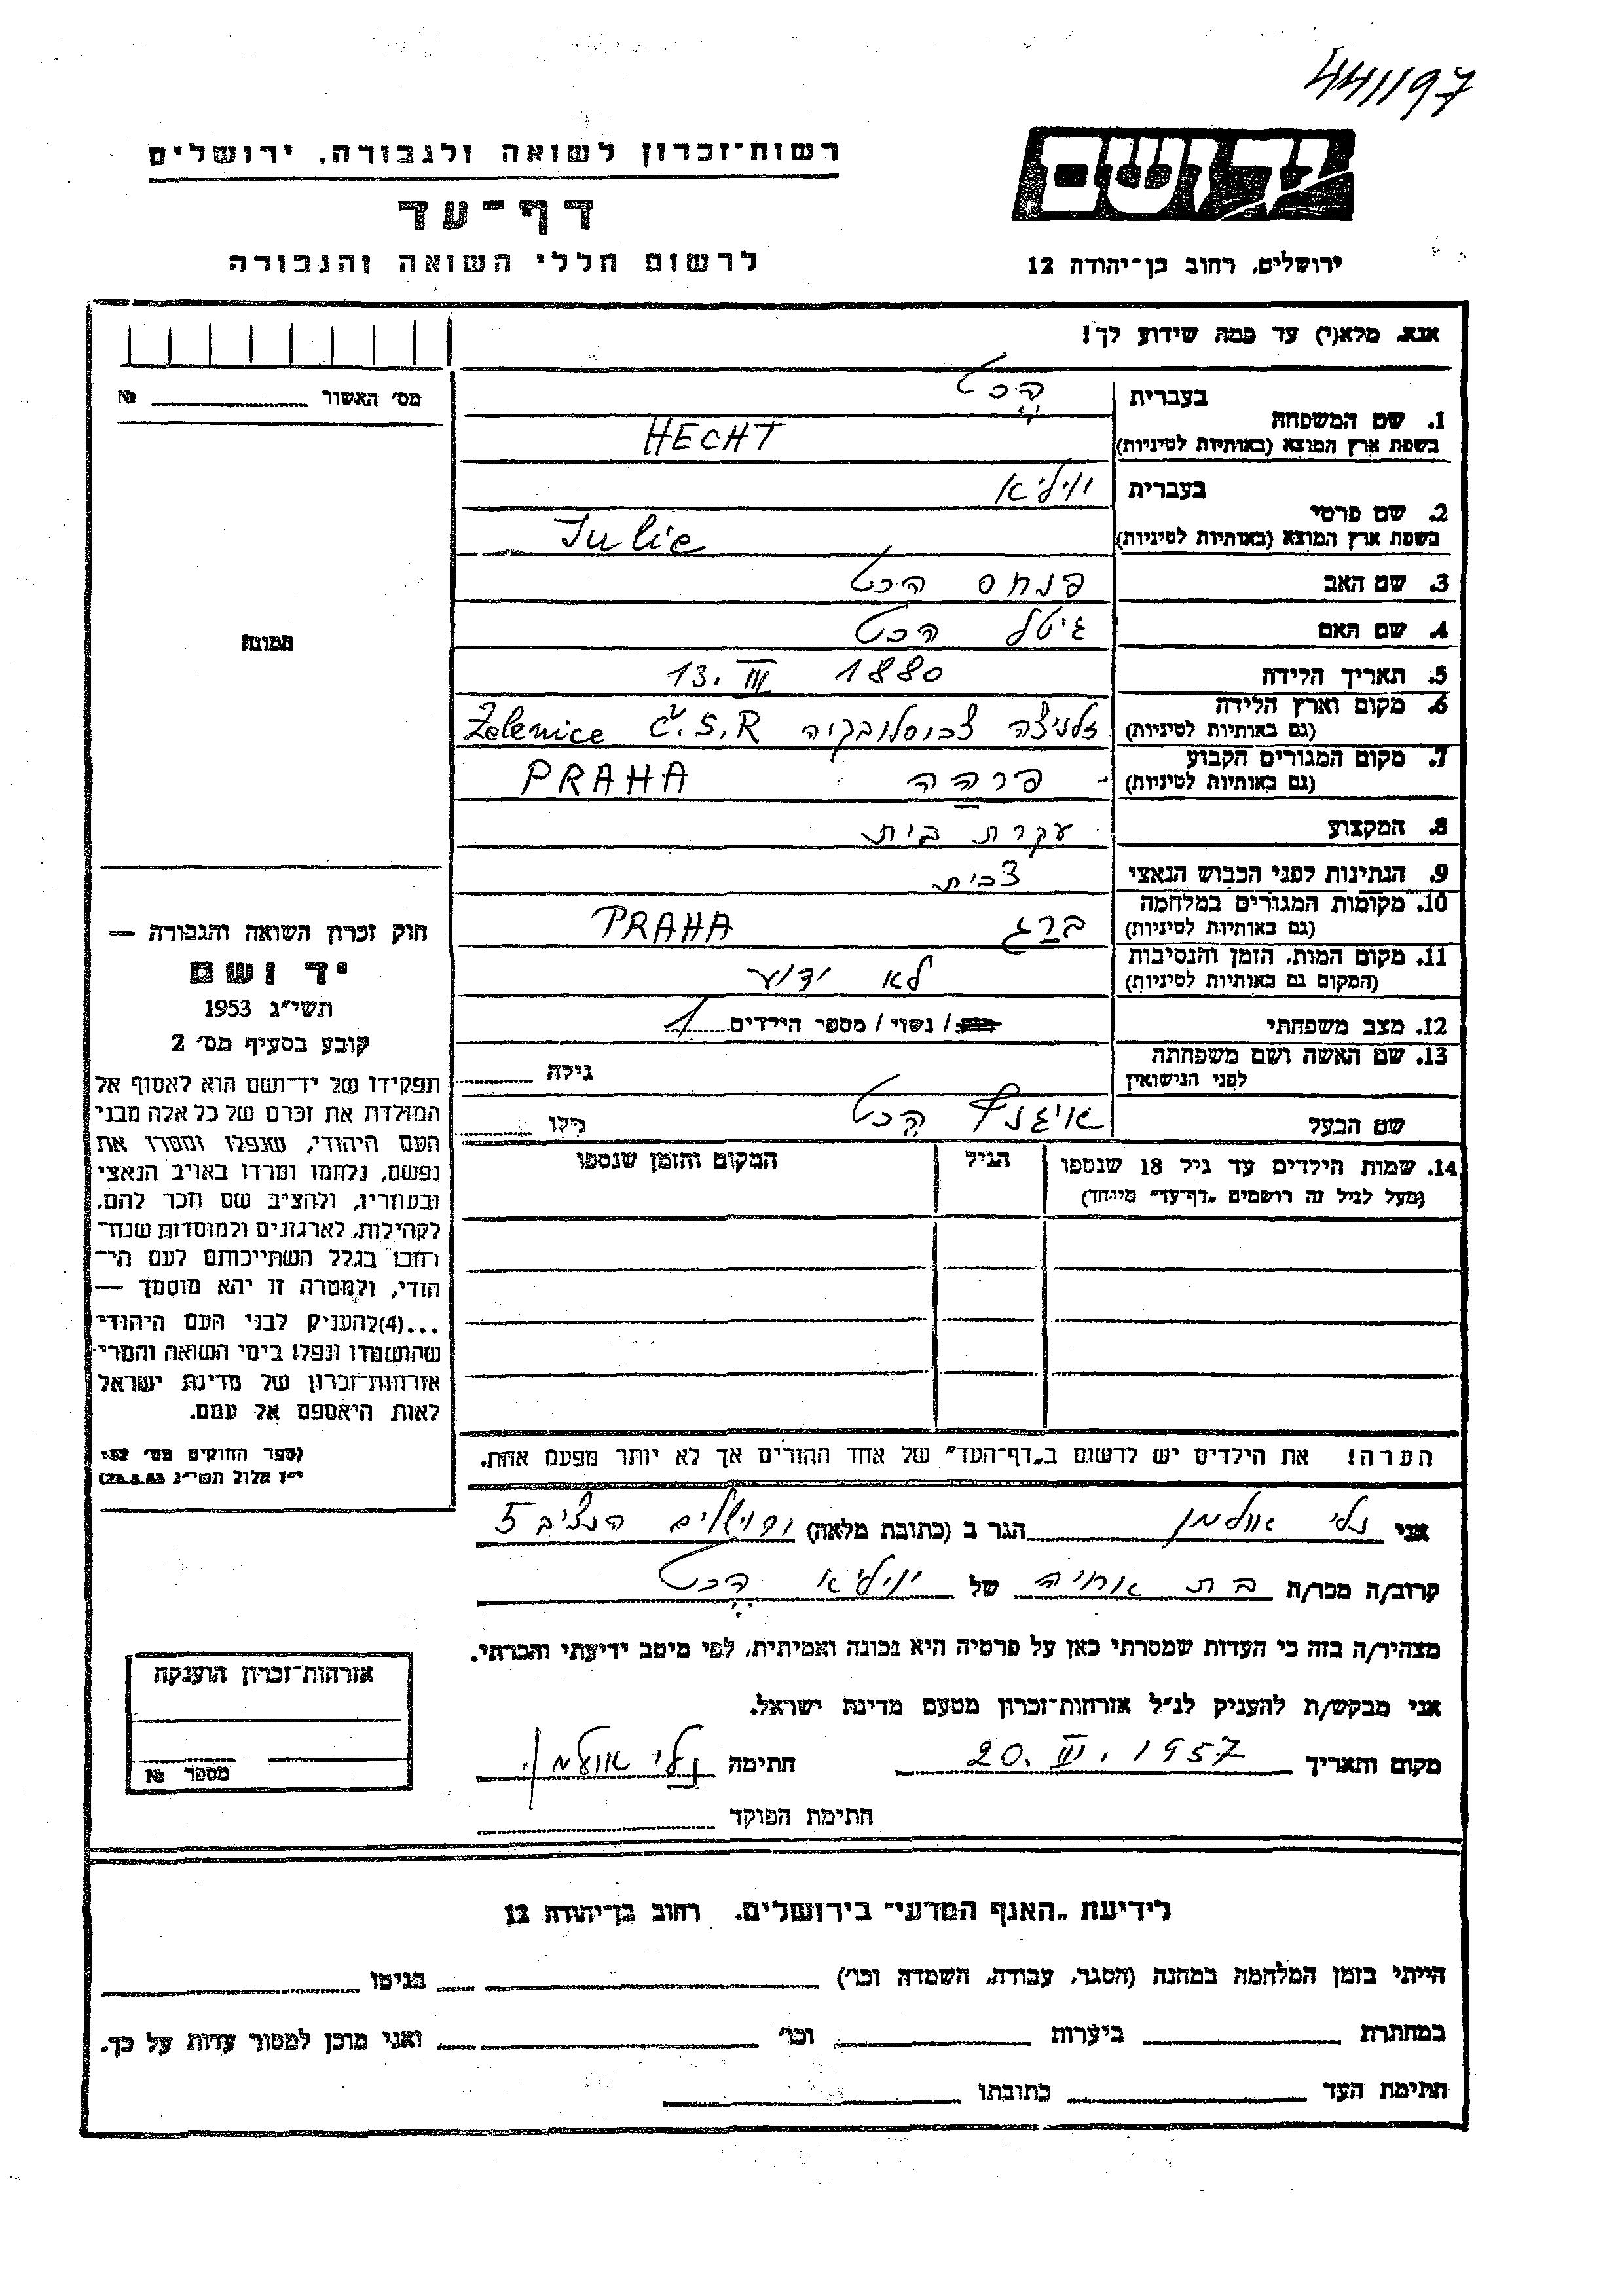 441197
יד ושם
רשות־זכרון לשואה ולגבורה, ירושלים
דף־עד
ירושלים, רחוב בן־יהודה 12
לרשום חללי השואה והגבורה
אנא, מלא(י) עד כמה שידוע לך!
מס׳ האשור № 
1. שם המשפחה
בעברית הכט
בשפת ארץ המוצא (באותיות לטיניות) HECHT
2. שם פרטי
בעברית יוליא
בשפת ארץ המוצא (באותיות לטיניות) Julie
3. שם האב פנחס הכט
4. שם האם גיטל הכט
5. תאריך הלידה 13. III 1880
6. מקום וארץ הלידה
(גם באותיות לטיניות) זלניצה צכוסלובקיה Želenice Č.S.R
7. מקום המגורים הקבוע
(גם באותיות לטיניות) פרהה PRAHA
8. המקצוע עקרת בית
9. הנתינות לפני הכבוש הנאצי צכית
10. מקומות המגורים במלחמה
(גם באותיות לטיניות) פרג PRAHA
11. מקום המות, הזמן והנסיבות
(המקום גם באותיות לטיניות) לא ידוע
12. מצב משפחתי רווק / נשוי / מספר הילדים 1
13. שם האשה ושם משפחתה
לפני הנישואין גילה
שם הבעל הכט גילו
14. שמות הילדים עד גיל 18 שנספו
(מעל לגיל זה רושמים „דף־עד״ מיוחד)
הגיל
המקום והזמן שנספו
הערה! את הילדים יש לרשום ב„דף־העד״ של אחד ההורים אך לא יותר מפעם אחת.
תמונה
חוק זכרון השואה והגבורה —
יד ושם
תשי״ג 1953
קובע בסעיף מס׳ 2
תפקידו של יד־ושם הוא לאסוף אל
המולדת את זכרם של כל אלה מבני
העם היהודי, שנפלו ומסרו את
נפשם, נלחמו ומרדו באויב הנאצי
ובעוזריו, ולהציב שם וזכר להם,
לקהילות, לארגונים ולמוסדות שנח־
רבו בגלל השתייכותם לעם הי־
הודי, ולמטרה זו יהא מוסמך —
...(4) להעניק לבני העם היהודי
שהושמדו ונפלו בימי השואה והמרי
אזרחות־זכרון של מדינת ישראל
לאות היאספם אל עמם.
(ספר החוקים מס׳ 132,
י״ז אלול תשי״ג 28.8.53)
אני נלי אולמן הגר ב (כתובת מלאה) ירושלים הנציב 5
קרוב/ה מכר/ה בת אחיה של יוליא הכט
מצהיר/ה בזה כי העדות שמסרתי כאן על פרטיה היא נכונה ואמיתית, לפי מיטב ידיעתי והכרתי.
אני מבקש/ת להעניק לנ״ל אזרחות־זכרון מטעם מדינת ישראל.
מקום ותאריך 20. III. 1957 חתימה נלי אולמן
חתימת הפוקד
אזרחות־זכרון הוענקה
מספר №
לידיעת „האגף המדעי״ בירושלים, רחוב בן־יהודה 12
הייתי בזמן המלחמה במחנה (הסגר, עבודה, השמדה וכו׳) בגיטו
במחתרת ביערות וכו׳ ואני מוכן למסור עדות על כך.
חתימת העד כתובתו